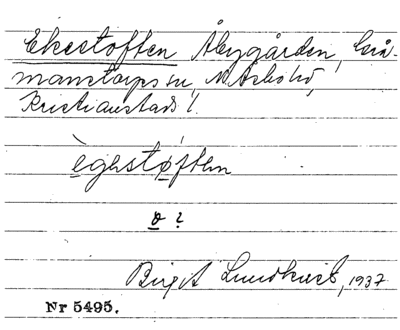 Ekestoften Åbygården, Grå-
manstorps sn, N. Åsbo hd,
Kristianstads l.
ègestøften
ø ?
Birgit Lundkvist, 1937
Nr 5495.